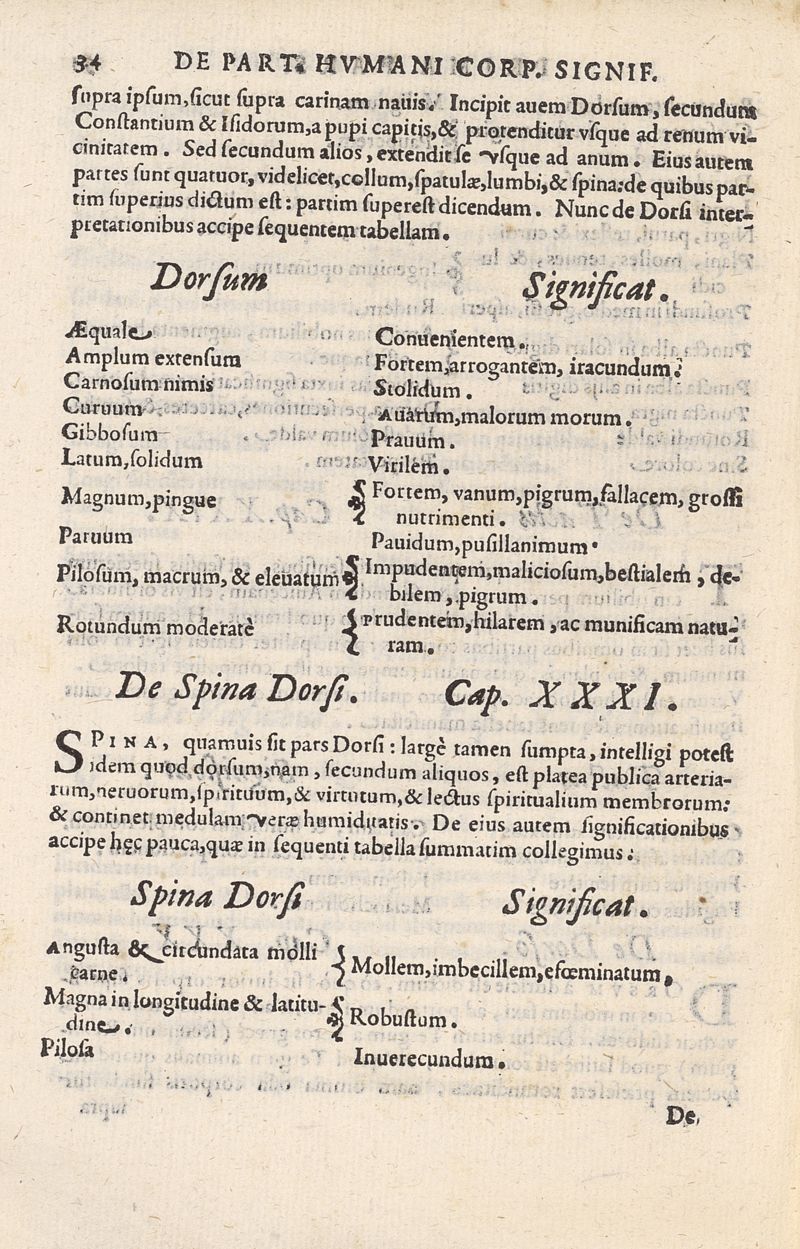 34 DE PART. HVMANI CORP. SIGNIF.
ſupra ipſum, ſicut ſupra carinam nauis. Incipit auem Dorſum, ſecundum
Conſtantium & Iſidorum, a pupi capitis, & protenditur vſque ad renum vi-
cinitatem. Sed ſecundum alios, extendit ſe vſque ad anum. Eius autem
partes ſunt quatuor, videlicet, collum, ſpatulæ, lumbi, & ſpina: de quibus par-
tim ſuperius dictum eſt: partim ſupereſt dicendum. Nunc de Dorſi inter-
pretationibus accipe ſequentem tabellam.
Dorſum Significat.
Æquale Conuenientem.
Amplum extenſum Fortem, arrogantem, iracundum.
Carnoſum nimis Stolidum.
Curuum Auarum, malorum morum.
Gibboſum Prauum.
Latum, ſolidum Virilem.
Magnum, pingue { Fortem, vanum, pigrum, fallacem, groſſi
nutrimenti.
Paruum Pauidum, puſillanimum.
Piloſum, macrum, & eleuatum { Impudentem, malicioſum, beſtialem, de-
bilem, pigrum.
Rotundum moderatè { Prudentem, hilarem, ac munificam natu-
ram.
De Spina Dorſi. Cap. XXXI.
SPINA, quamuis ſit pars Dorſi: largè tamen ſumpta, intelligi poteſt
idem quod dorſum, nam, ſecundum aliquos, eſt platea publica arteria-
rum, neruorum, ſpirituum, & virtutum, & lectus ſpiritualium membrorum:
& continet medulam veræ humiditatis. De eius autem ſignificationibus
accipe hęc pauca, quæ in ſequenti tabella ſummatim collegimus.
Spina Dorſi Significat.
Anguſta & circundata molli
carne. { Mollem, imbecillem, efœminatum.
Magna in longitudine & latitu-
dine. { Robuſtum.
Piloſa Inuerecundum.
De